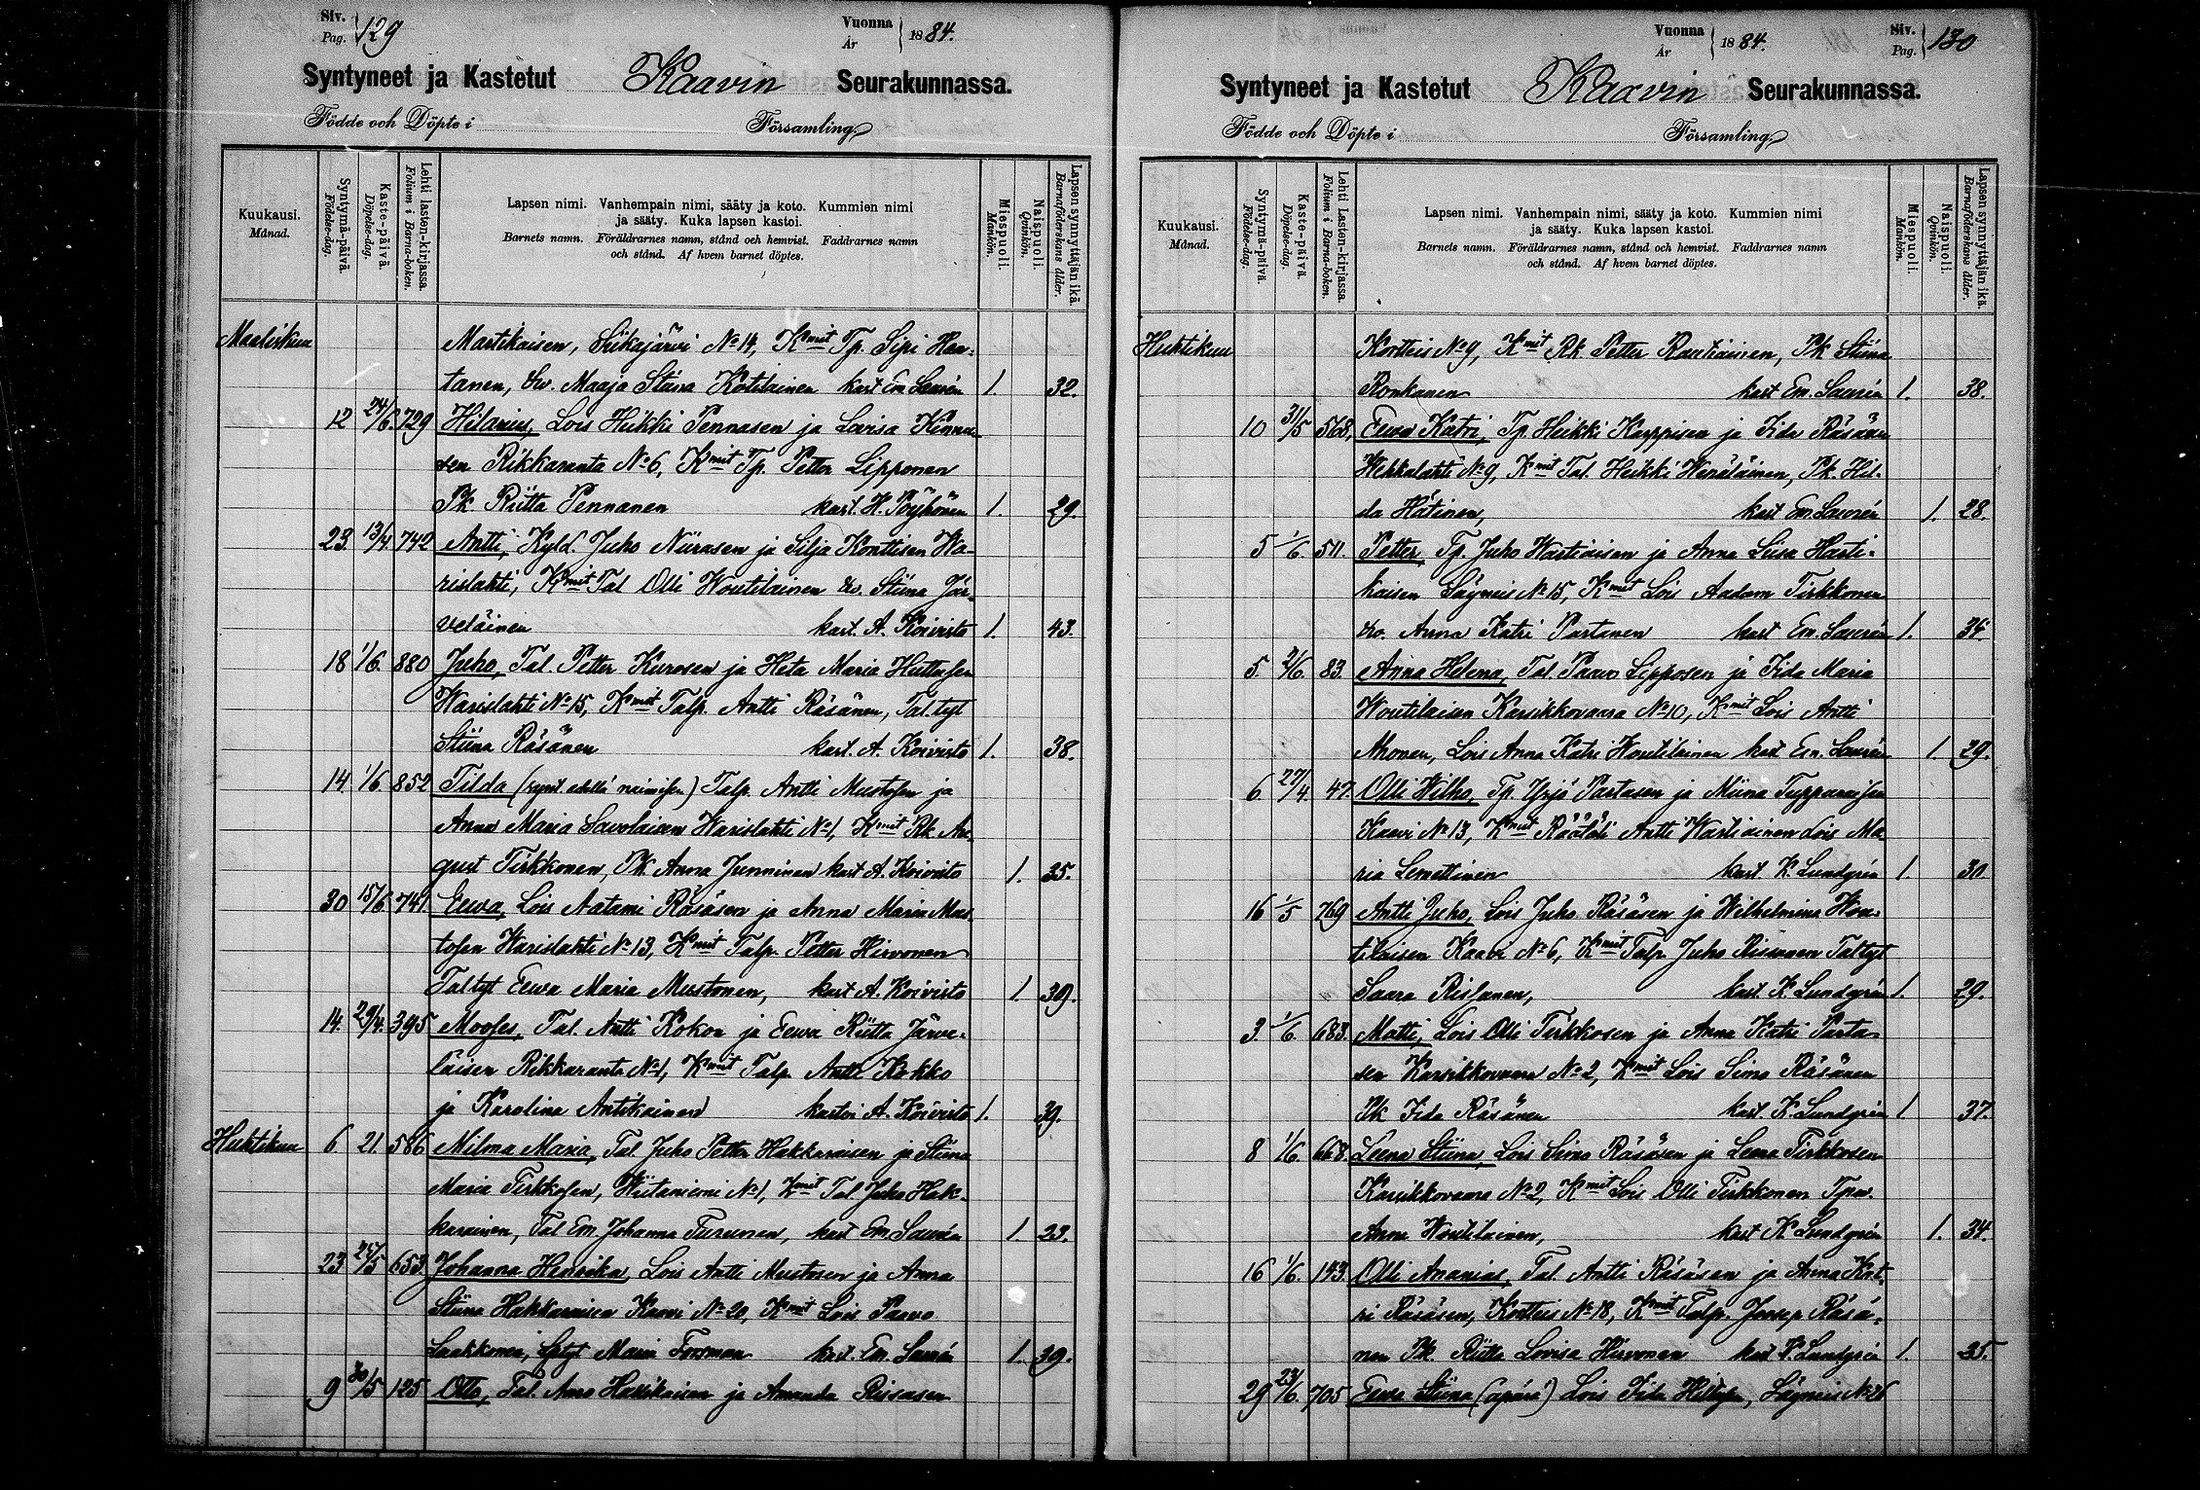 Siv. Pag. 129 Vuonna År 1884.
Syntyneet ja Kastetut Kaavin Seurakunnassa.
Födde och Döpte i Församling
Kuukausi. Månad.
Syntymä-päivä. Födelse-dag.
Kaste-päivä. Döpelse-dag.
Lehti lasten-kirjassa. Folium i Barna-boken.
Lapsen nimi. Vanhempain nimi, sääty ja koto. Kummien nimi
ja sääty. Kuka lapsen kastoi.
Barnets namn. Föräldrarnes namn, stånd och hemvist. Faddrarnes namn
och stånd. Af hvem barnet döptes.
Miespuoli. Mankön.
Naispuoli. Qvinkön.
Lapsen synnyttäjän ikä. Barnaföderskans ålder.
Maaliskuu Martikaisen, Siikajärvi No 14, Kmit Tp. Sipi Han-
tanen, Maaja Stiina Kotilainen kast Em. Saurén 1. 32.
12 24/6. 729 Hilarius, Lois Heikki Pennasen ja Lovisa Kinnu-
sen Rikkaranta No 6, Kmit Tp. Petter Lipponen
Pk Riitta Pennanen kast. H. Pöyhönen 1. 29.
23. 13/4. 742 Antti, Kyld. Juho Niirasen ja Silja Konttisen Wa-
rislahti, Kmit Tal Olli Woutilainen Stiina Jär-
veläinen kast. A. Koivisto 1. 43.
18 1/6 880 Juho, Tal. Petter Kurosen ja Heta Maria Huttusen
Warislahti No 15, Kmit Talp. Antti Räsänen, Tal. tyt
Stiina Räsänen kast. A. Koivisto 1. 38.
14 1/6 852 Tilda (synt. edellä naimisen) Talp. Antti Mustosen ja
Anna Maria Savolaisen Warislahti No 1, Kmit Rk. Au-
gust Tirkkonen, Pk Anna Junninen kast A. Koivisto 1. 35.
30 15/6 741 Eewa, Lois Aatami Räsäsen ja Anna Maria Mus
tosen Warislahti No 13, Kmit Talp. Petter Hirvonen
Tal tyt Eewa Maria Mustonen, kast A. Koivisto 1. 39.
14. 29/4. 395 Mooses, Tal. Antti Kokon ja Eewa Riitta Järve-
läisen Rikkaranta No 1, Kmit Talp Antti Kokko
ja Karolina Antikainen kastoi A. Koivisto 1. 39.
Huhtikuu 6. 21. 586 Milma Maria, Tal Juho Petter Hakkaraisen ja Stiina
Maria Tirkkosen, Niitaniemi No 1, Kmit Tal. Juho Hak-
karainen, Tal Em. Johanna Turunen, kast Em. Saurén 1 23.
23 25/5 653 Johanna Henrika, Lois Antti Mustosen ja Anna
Stiina Hakkaraisen Kaavi No 20, Kmit Lois Paavo
Laakkonen, Maria Forsman kast. Em. Saurén 1. 39.
9 30/5 125 Otto, Tal. Aaro Harikaisen ja Amanda Rissasen
Siv. Pag. 130 Vuonna År 1884.
Syntyneet ja Kastetut Kaavin Seurakunnassa.
Födde och Döpte i Församling
Kuukausi. Månad.
Syntymä-päivä. Födelse-dag.
Kaste-päivä. Döpelse-dag.
Lehti Lasten-kirjassa. Folium i Barna-boken.
Lapsen nimi. Vanhempain nimi, sääty ja koto. Kummien nimi
ja sääty. Kuka lapsen kastoi.
Barnets namn. Föräldrarnes namn, stånd och hemvist. Faddrarnes namn
och stånd. Af hvem barnet döptes.
Miespuoli. Mankön.
Naispuoli. Qvinkön.
Lapsen synnyttäjän ikä. Barnaföderskans ålder.
Huhtikuu Kortteis No 9, Kmit Rk Petter Rautiainen, Pk Stiina
Ronkanen kast Em. Saurén 1. 38.
10 31/5 568, Eewa Katri, Tp. Heikki Karppisen ja Iida Räsäsen
Wehkalahti No 9, Kmit Tal. Heikki Weräläinen, Pk. Hil-
da Hätinen, kast Em. Saurén 1. 28.
5 1/6. 511. Petter, Tp. Juho Wartiaisen ja Anna Liisa Harti-
kaisen Säyneis No 15, Kmit Lois Aadam Tirkkonen
Anna Katri Partanen kast Em. Saurén 1. 34
5. 2/6. 83. Anna Helena, Tal. Paavo Lipposen ja Iida Maria
Woutilaisen Karsikkovaara No 10, Kmit Lois Antti
Ahonen, Lois Anna Katri Woutilainen kast Em. Saurén 1. 29.
6 27/4 47. Olli Wilho, Tp. Yrjö Partasen ja Miina Tuppuraisen
Kaavi No 13, Kmit Räätäli Antti Wartiainen Lois Ma-
ria Lemettinen kast. K. Lundgrén 1. 30
16 1/5 769 Antti Juho, Lois Juho Räsäsen ja Wilhelmina Wou-
tilaisen Kaavi No 6, Kmit Talp Juho Rissanen Tal tyt
Saara Rissanen, kast. K. Lundgrén 1. 29.
3. 1/6. 683. Matti, Lois Olli Tirkkosen ja Anna Katri Parta-
sen Karsikkovaara No 2, Kmit Lois Simo Räsänen
Pk Iida Räsänen kast. K. Lundgrén 1 37.
8 1/6. 668. Leena Stiina, Lois Simo Räsäsen ja Leena Tirkkosen
Karsikkovaara No 2, Kmit Lois Olli Tirkkonen
Anna Woutilainen, kast K. Lundgrén 1. 34.
16 1/6. 143. Olli Ananias, Tal. Antti Räsäsen ja Anna Kat-
ri Räsäsen, Kortteis No 18, Kmit Talp. Joosep Räsä-
nen Pk. Riitta Lovisa Hirvonen kast K. Lundgrén 1. 35.
29 23/6. 705 Eewa Stiina (äpärä) Lois Iida, Säyneis No 36